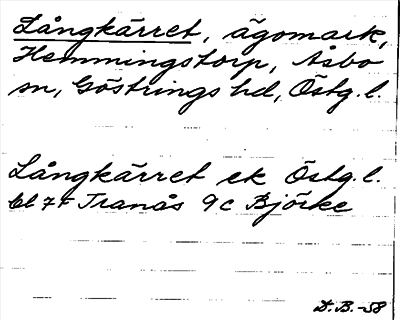 Långkärret, ägomark,
Hemmingstorp, Åsbo
sn, Göstrings hd, Östg. l.
Långkärret ek Östg. l.
bl 7F Tranås 9c Björke
D.B.-58